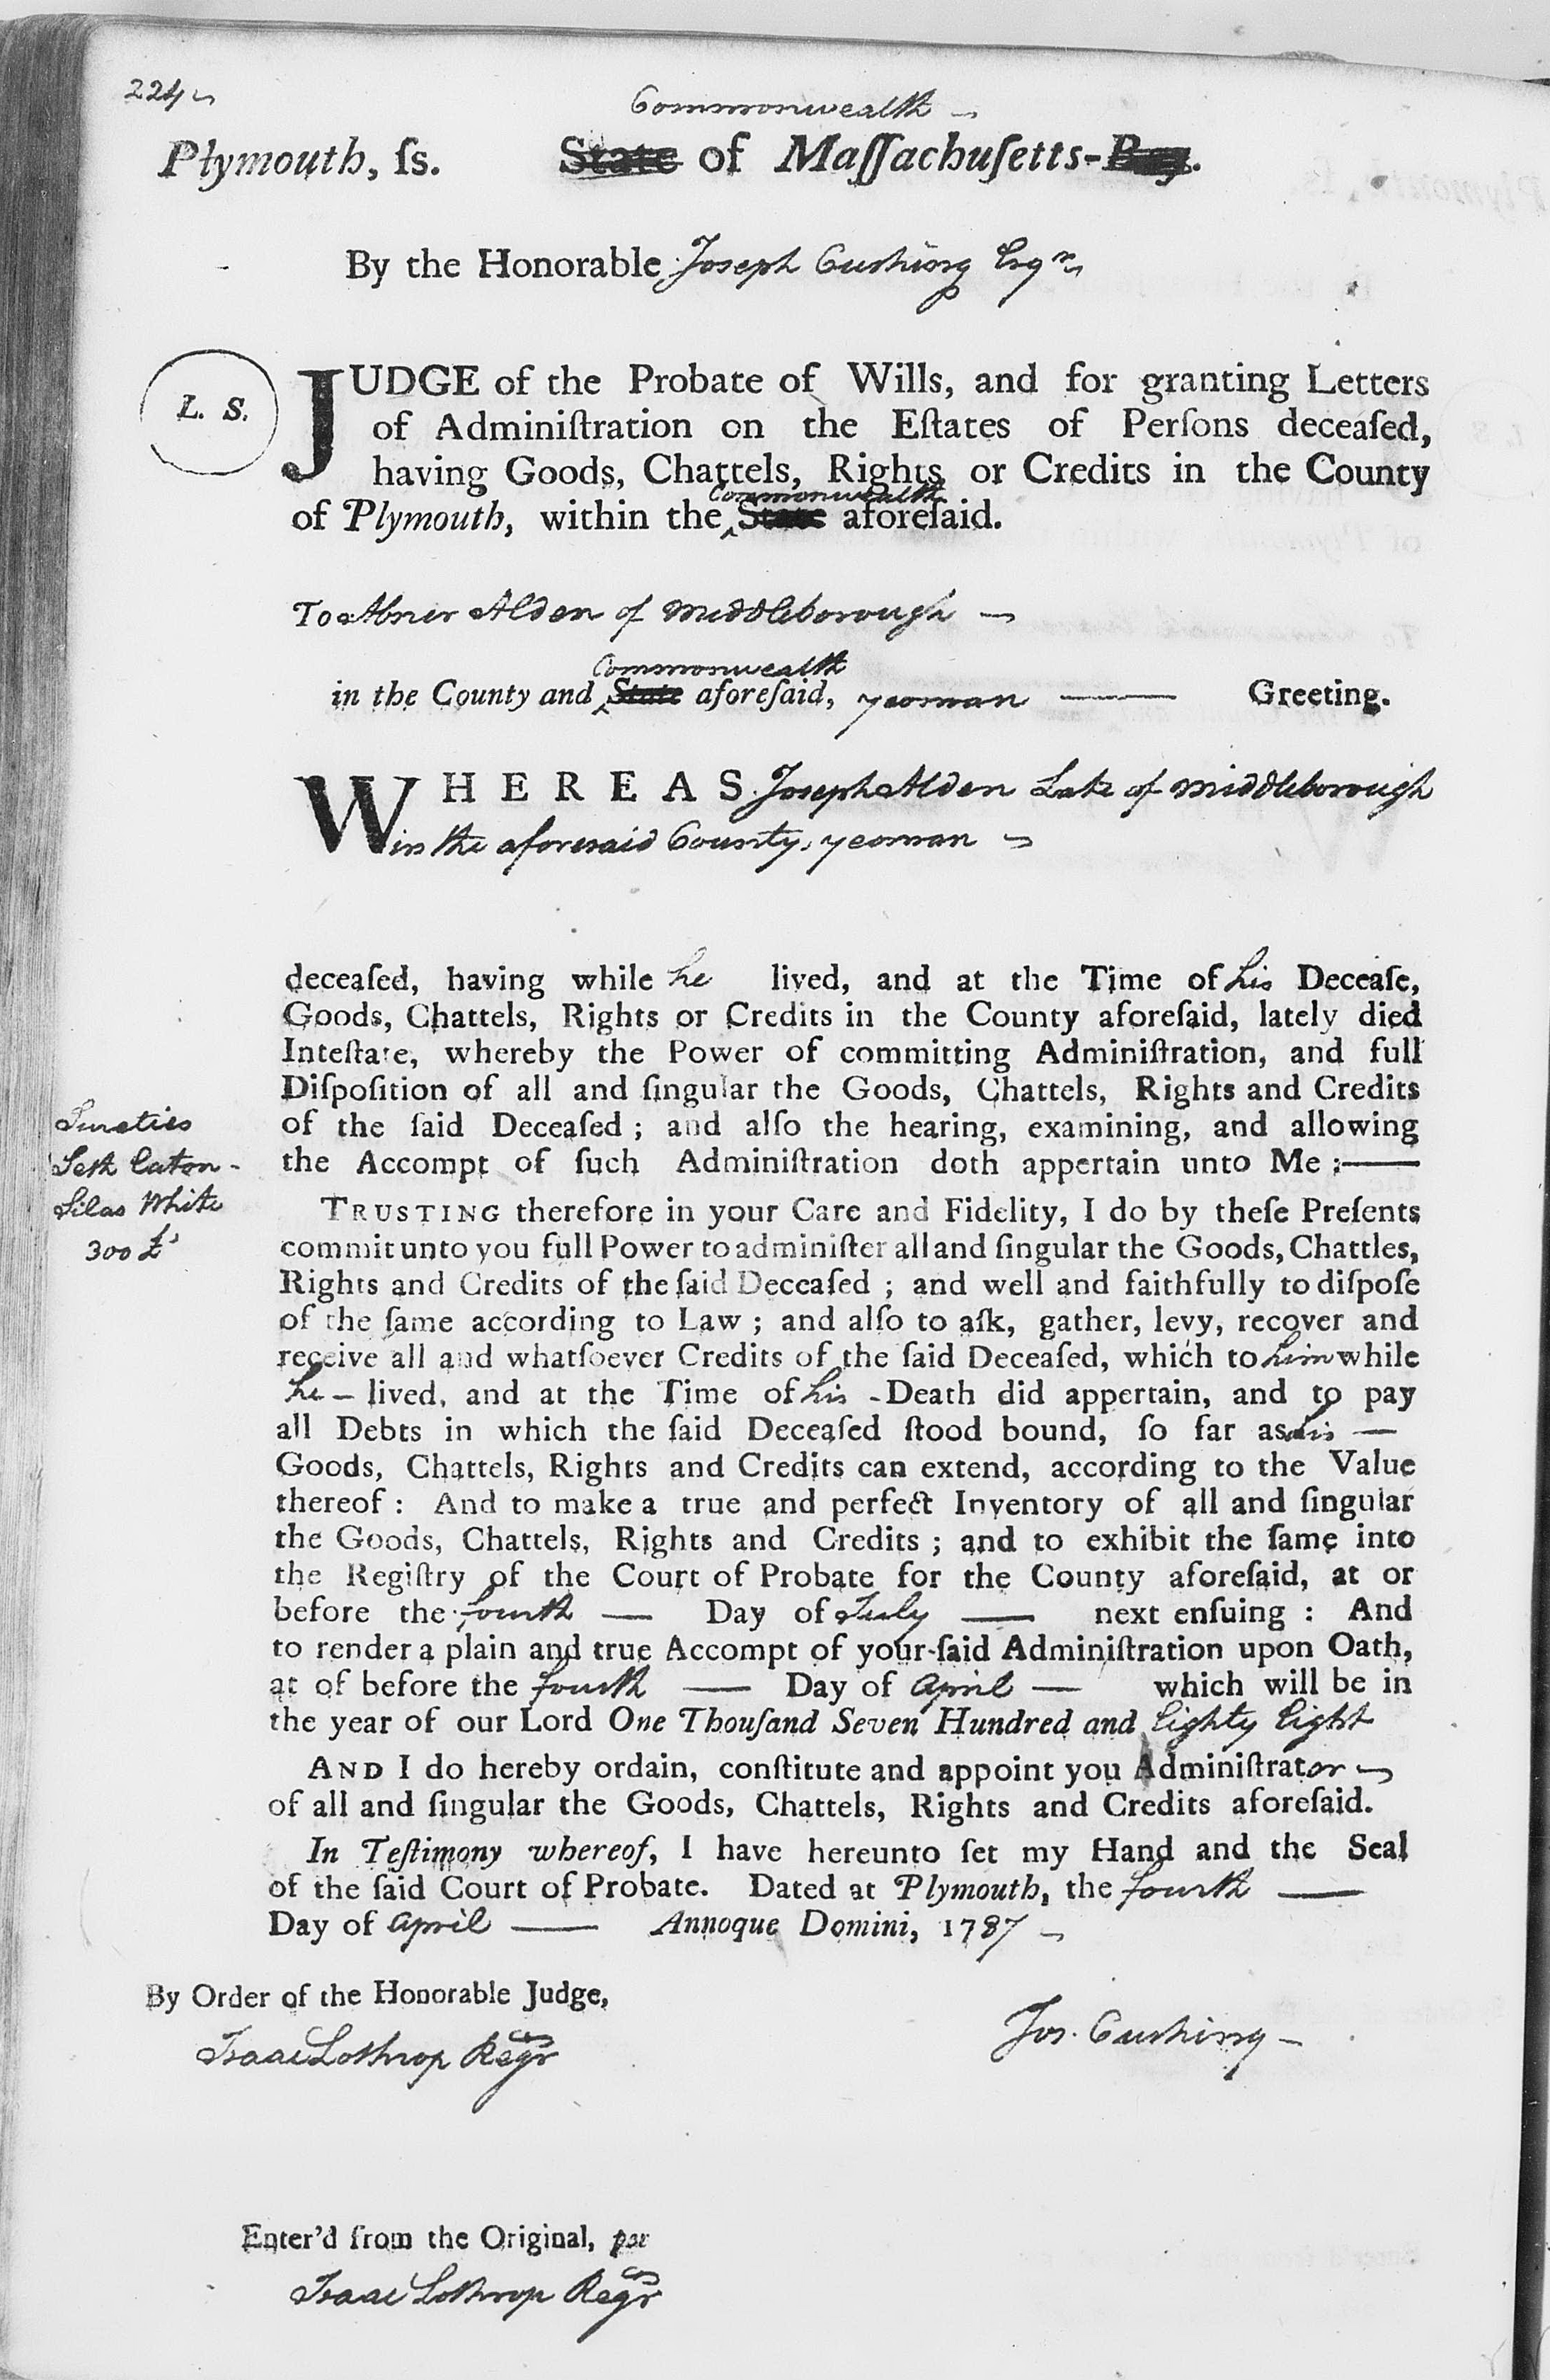 224
Commonwealth
Plymouth, ſs. State of Maſſachuſetts-Bay.
By the Honorable Joseph Cushing Esqr
L. S.
JUDGE of the Probate of Wills, and for granting Letters
of Adminiſtration on the Eſtates of Perſons deceaſed,
having Goods, Chattels, Rights or Credits in the County
Commonwealth
of Plymouth, within the ‸State aforeſaid.
To Abner Alden of Middleborough
Commonwealth
in the County and ‸State aforeſaid, yeoman Greeting.
WHEREAS Joseph Alden Late of Middleborough
in the aforesaid County, yeoman
deceaſed, having while he lived, and at the Time of his Deceaſe,
Goods, Chattels, Rights or Credits in the County aforeſaid, lately died
Inteſtate, whereby the Power of committing Adminiſtration, and full
Diſpoſition of all and ſingular the Goods, Chattels, Rights and Credits
of the ſaid Deceaſed ; and alſo the hearing, examining, and allowing
the Accompt of ſuch Adminiſtration doth appertain unto Me ;——
Sureties
Seth Eaton -
Silas White
300 £s
TRUSTING therefore in your Care and Fidelity, I do by theſe Preſents
commit unto you full Power to adminiſter all and ſingular the Goods, Chattles,
Rights and Credits of the ſaid Deceaſed ; and well and faithfully to diſpoſe
of the ſame according to Law ; and alſo to aſk, gather, levy, recover and
receive all and whatſoever Credits of the ſaid Deceaſed, which to him while
he — lived, and at the Time of his - Death did appertain, and to pay
all Debts in which the ſaid Deceaſed ſtood bound, ſo far as his —
Goods, Chattels, Rights and Credits can extend, according to the Value
thereof : And to make a true and perfect Inventory of all and ſingular
the Goods, Chattels, Rights and Credits ; and to exhibit the ſame into
the Regiſtry of the Court of Probate for the County aforeſaid, at or
before the fourth — Day of July — next enſuing : And
to render a plain and true Accompt of your ſaid Adminiſtration upon Oath,
at of before the fourth — Day of April — which will be in
the year of our Lord One Thouſand Seven Hundred and Eighty Eight
AND I do hereby ordain, conſtitute and appoint you Adminiſtrator
of all and ſingular the Goods, Chattels, Rights and Credits aforeſaid.
In Teſtimony whereof, I have hereunto ſet my Hand and the Seal
of the ſaid Court of Probate. Dated at Plymouth, the fourth —
Day of April — Annoque Domini, 1787
By Order of the Honorable Judge,
Isaac Lothrop Regr
Jos. Cushing -
Enter'd from the Original, per
Isaac Lothrop Regr